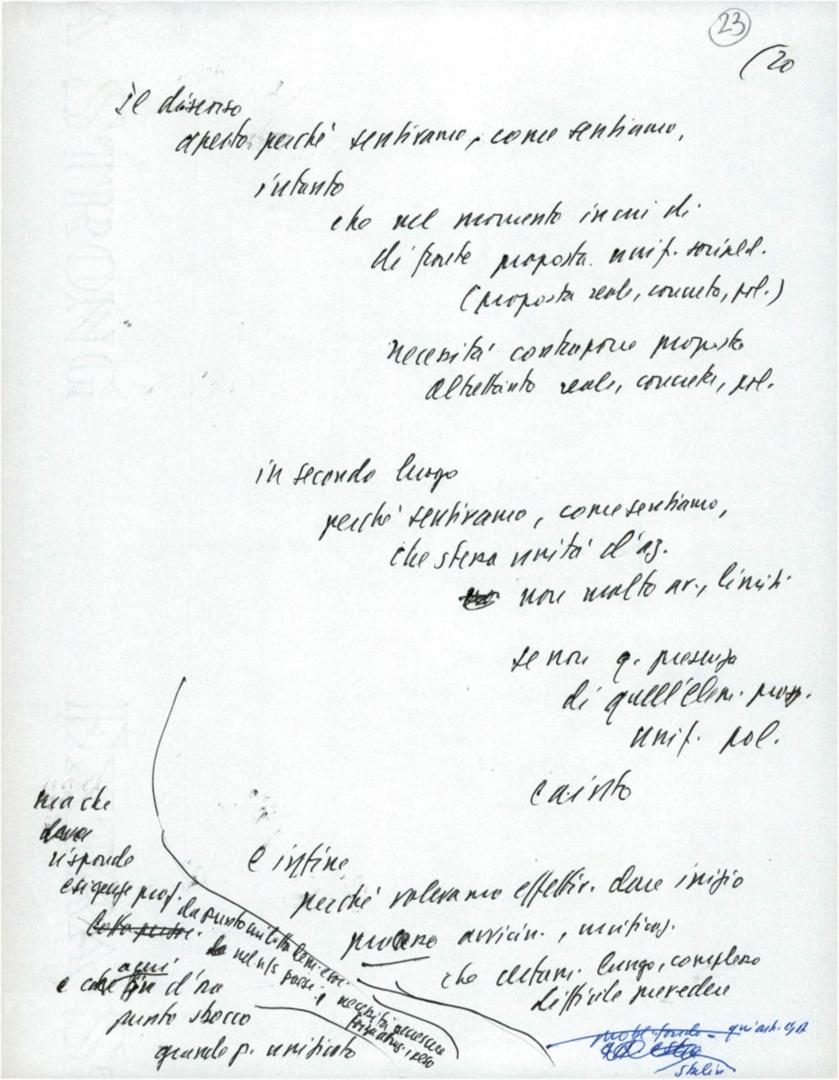 23
(20
Il discorso
aperto perché sentivamo, come sentiamo,
intanto
che nel momento in cui di
di fronte proposta unif. sociald.
(proposta reale, concreta, pol.)
necessità contrapporre proposta
altrettanto reale, concreta, pol.
in secondo luogo
perché sentivamo, come sentiamo,
che stessa unità d'az.
non molto av., limiti
se non q. presenza
di quell'elem. prosp.
unif. pol.
e infine
perché volevamo effettiv. dare inizio
processo avvicin., unitivo.
che certam. lungo, complesso
difficile prevedere
ma che
deve
risponde
esigenze prof.
da punto
nel n/s paese
necessità
e che fin d'ora
punto sbocco
grande p. unificato
Stalin